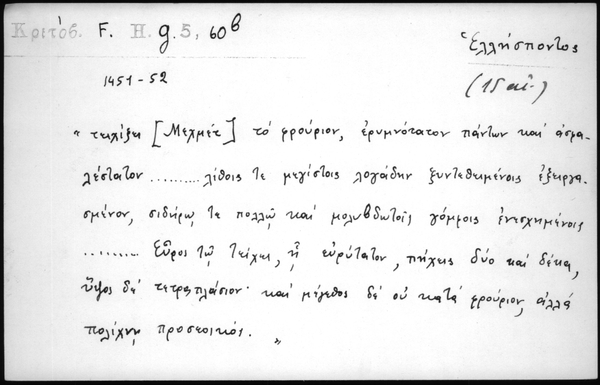 Κριτόβ. F. H. g. 5, 60β
Ἑλλήσποντος
1451-52
(15 αἰ.)
"τειχίζει [Μεχμέτ] τό φρούριον, ἐρυμνότατον πάντων καί ἀσφα-
λέστατον .......... λίθοις τε μεγίστοις λογάδην ξυντεθειμένοις ἐξειργα-
σμένον, σιδήρῳ τε πολλῷ καί μολυβδωτοῖς γόμφοις ἐνεσχημένοις
......... Εὖρος τῷ τείχει, ᾗ εὐρύτατον, πήχεις δύο καί δέκα,
ὕψος δέ τετραπλάσιον· καί μέγεθος δέ οὐ κατά φρούριον, ἀλλά
πολίχνῃ προσεοικός."